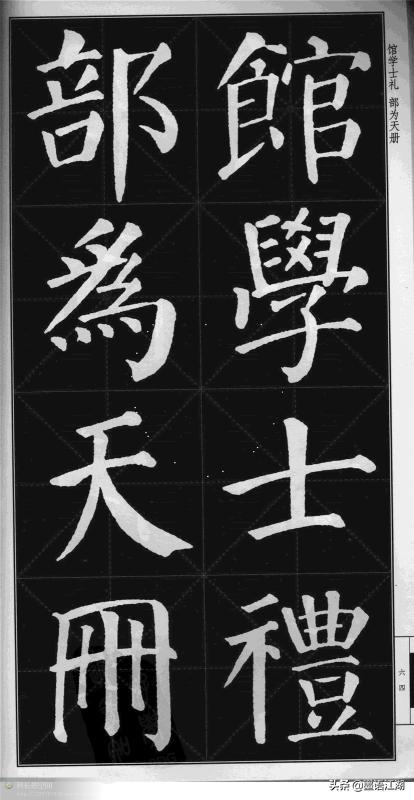 館學士禮
部爲天冊
馆学士礼 部为天册
六四
头条 @墨语江湖